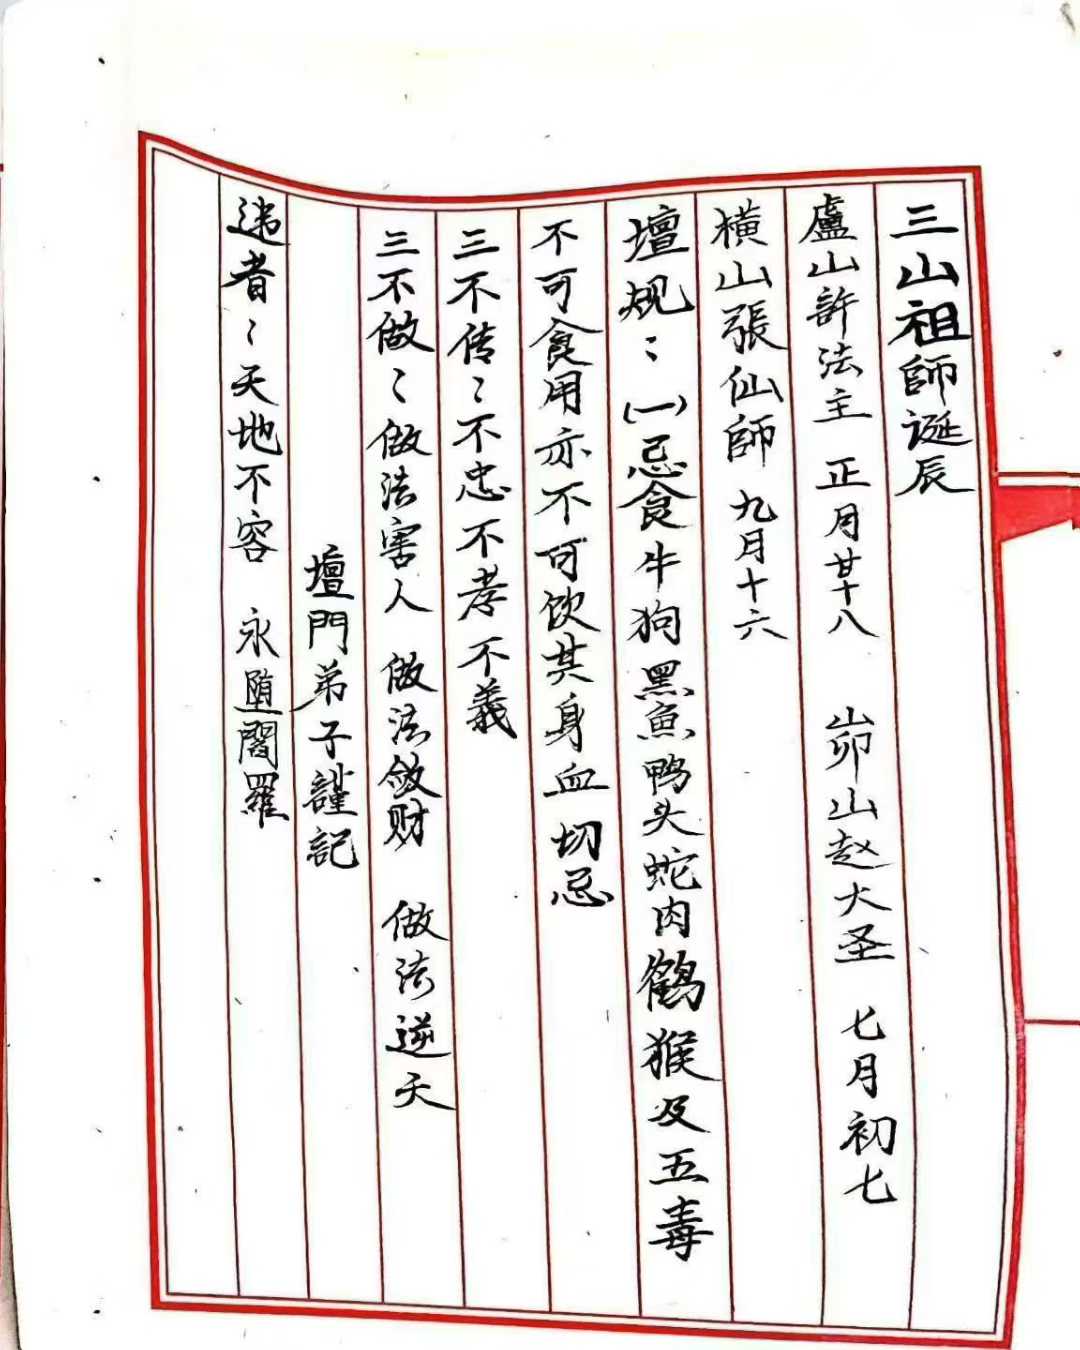 三山祖師诞辰
盧山許法主 正月廿十八 峁山赵大圣 七月初七
横山張仙師 九月十六
壇规：(一)忌食牛狗黑魚鸭头蛇肉鹤猴及五毒
不可食用亦不可饮其身血切忌
三不传：不忠不孝不義
三不做：做法害人 做法敛财 做法逆天
壇門弟子謹記
违者：天地不容 永堕閻羅